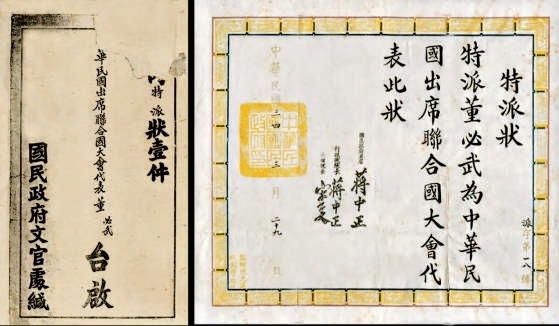 特派狀壹件
華民國出席聯合國大會代表董必武台啟
國民政府文官處緘
派字第一八號
特派狀
特派董必武為中華民
國出席聯合國大會代
表此狀
國民政府主席 蔣中正
行政院院長 蔣中正
中華民國三四年三月二十九日